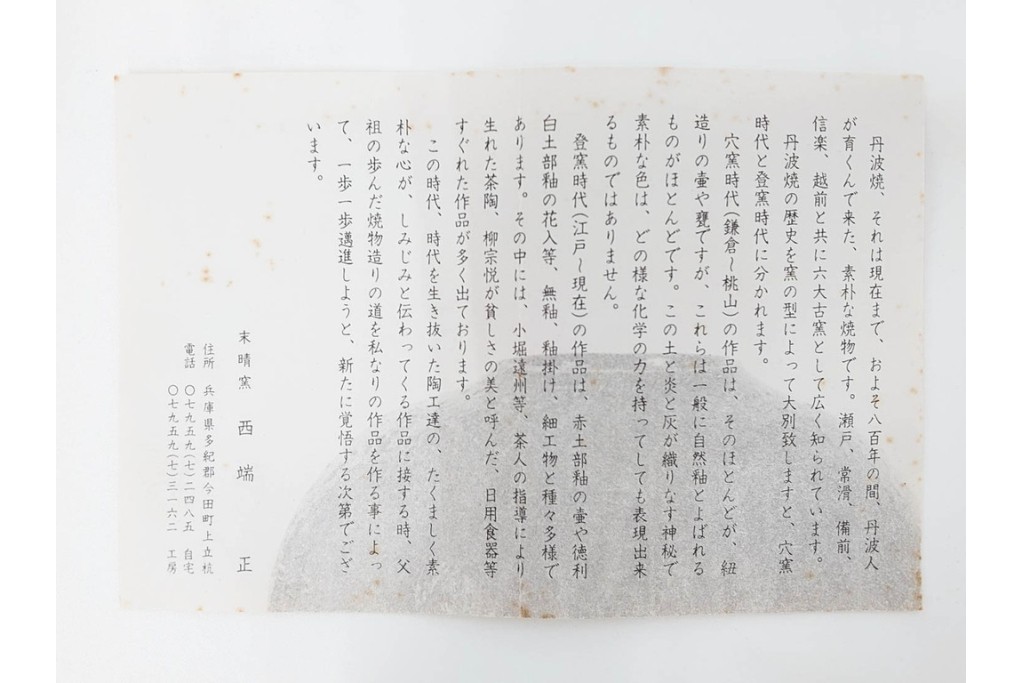 丹波焼、それは現在まで、およそ八百年の間、丹波人
が育くんで来た、素朴な焼物です。瀬戸、常滑、備前、
信楽、越前と共に六大古窯として広く知られています。
丹波焼の歴史を窯の型によって大別致しますと、穴窯
時代と登窯時代に分かれます。
穴窯時代(鎌倉〜桃山)の作品は、そのほとんどが、紐
造りの壷や甕ですが、これらは一般に自然釉とよばれる
ものがほとんどです。この土と炎と灰が織りなす神秘で
素朴な色は、どの様な化学の力を持ってしても表現出来
るものではありません。
登窯時代(江戸〜現在)の作品は、赤土部釉の壷や徳利
白土部釉の花入等、無釉、釉掛け、細工物と種々多様で
あります。その中には、小堀遠州等、茶人の指導により
生れた茶陶、柳宗悦が貧しさの美と呼んだ、日用食器等
すぐれた作品が多く出ております。
この時代、時代を生き抜いた陶工達の、たくましく素
朴な心が、しみじみと伝わってくる作品に接する時、父
祖の歩んだ焼物造りの道を私なりの作品を作る事によっ
て、一歩一歩邁進しようと、新たに覚悟する次第でござ
います。
末晴窯 西端 正
住所 兵庫県多紀郡今田町上立杭
電話 〇七九五九(七)二四八五 自宅
〇七九五九(七)三一六二 工房